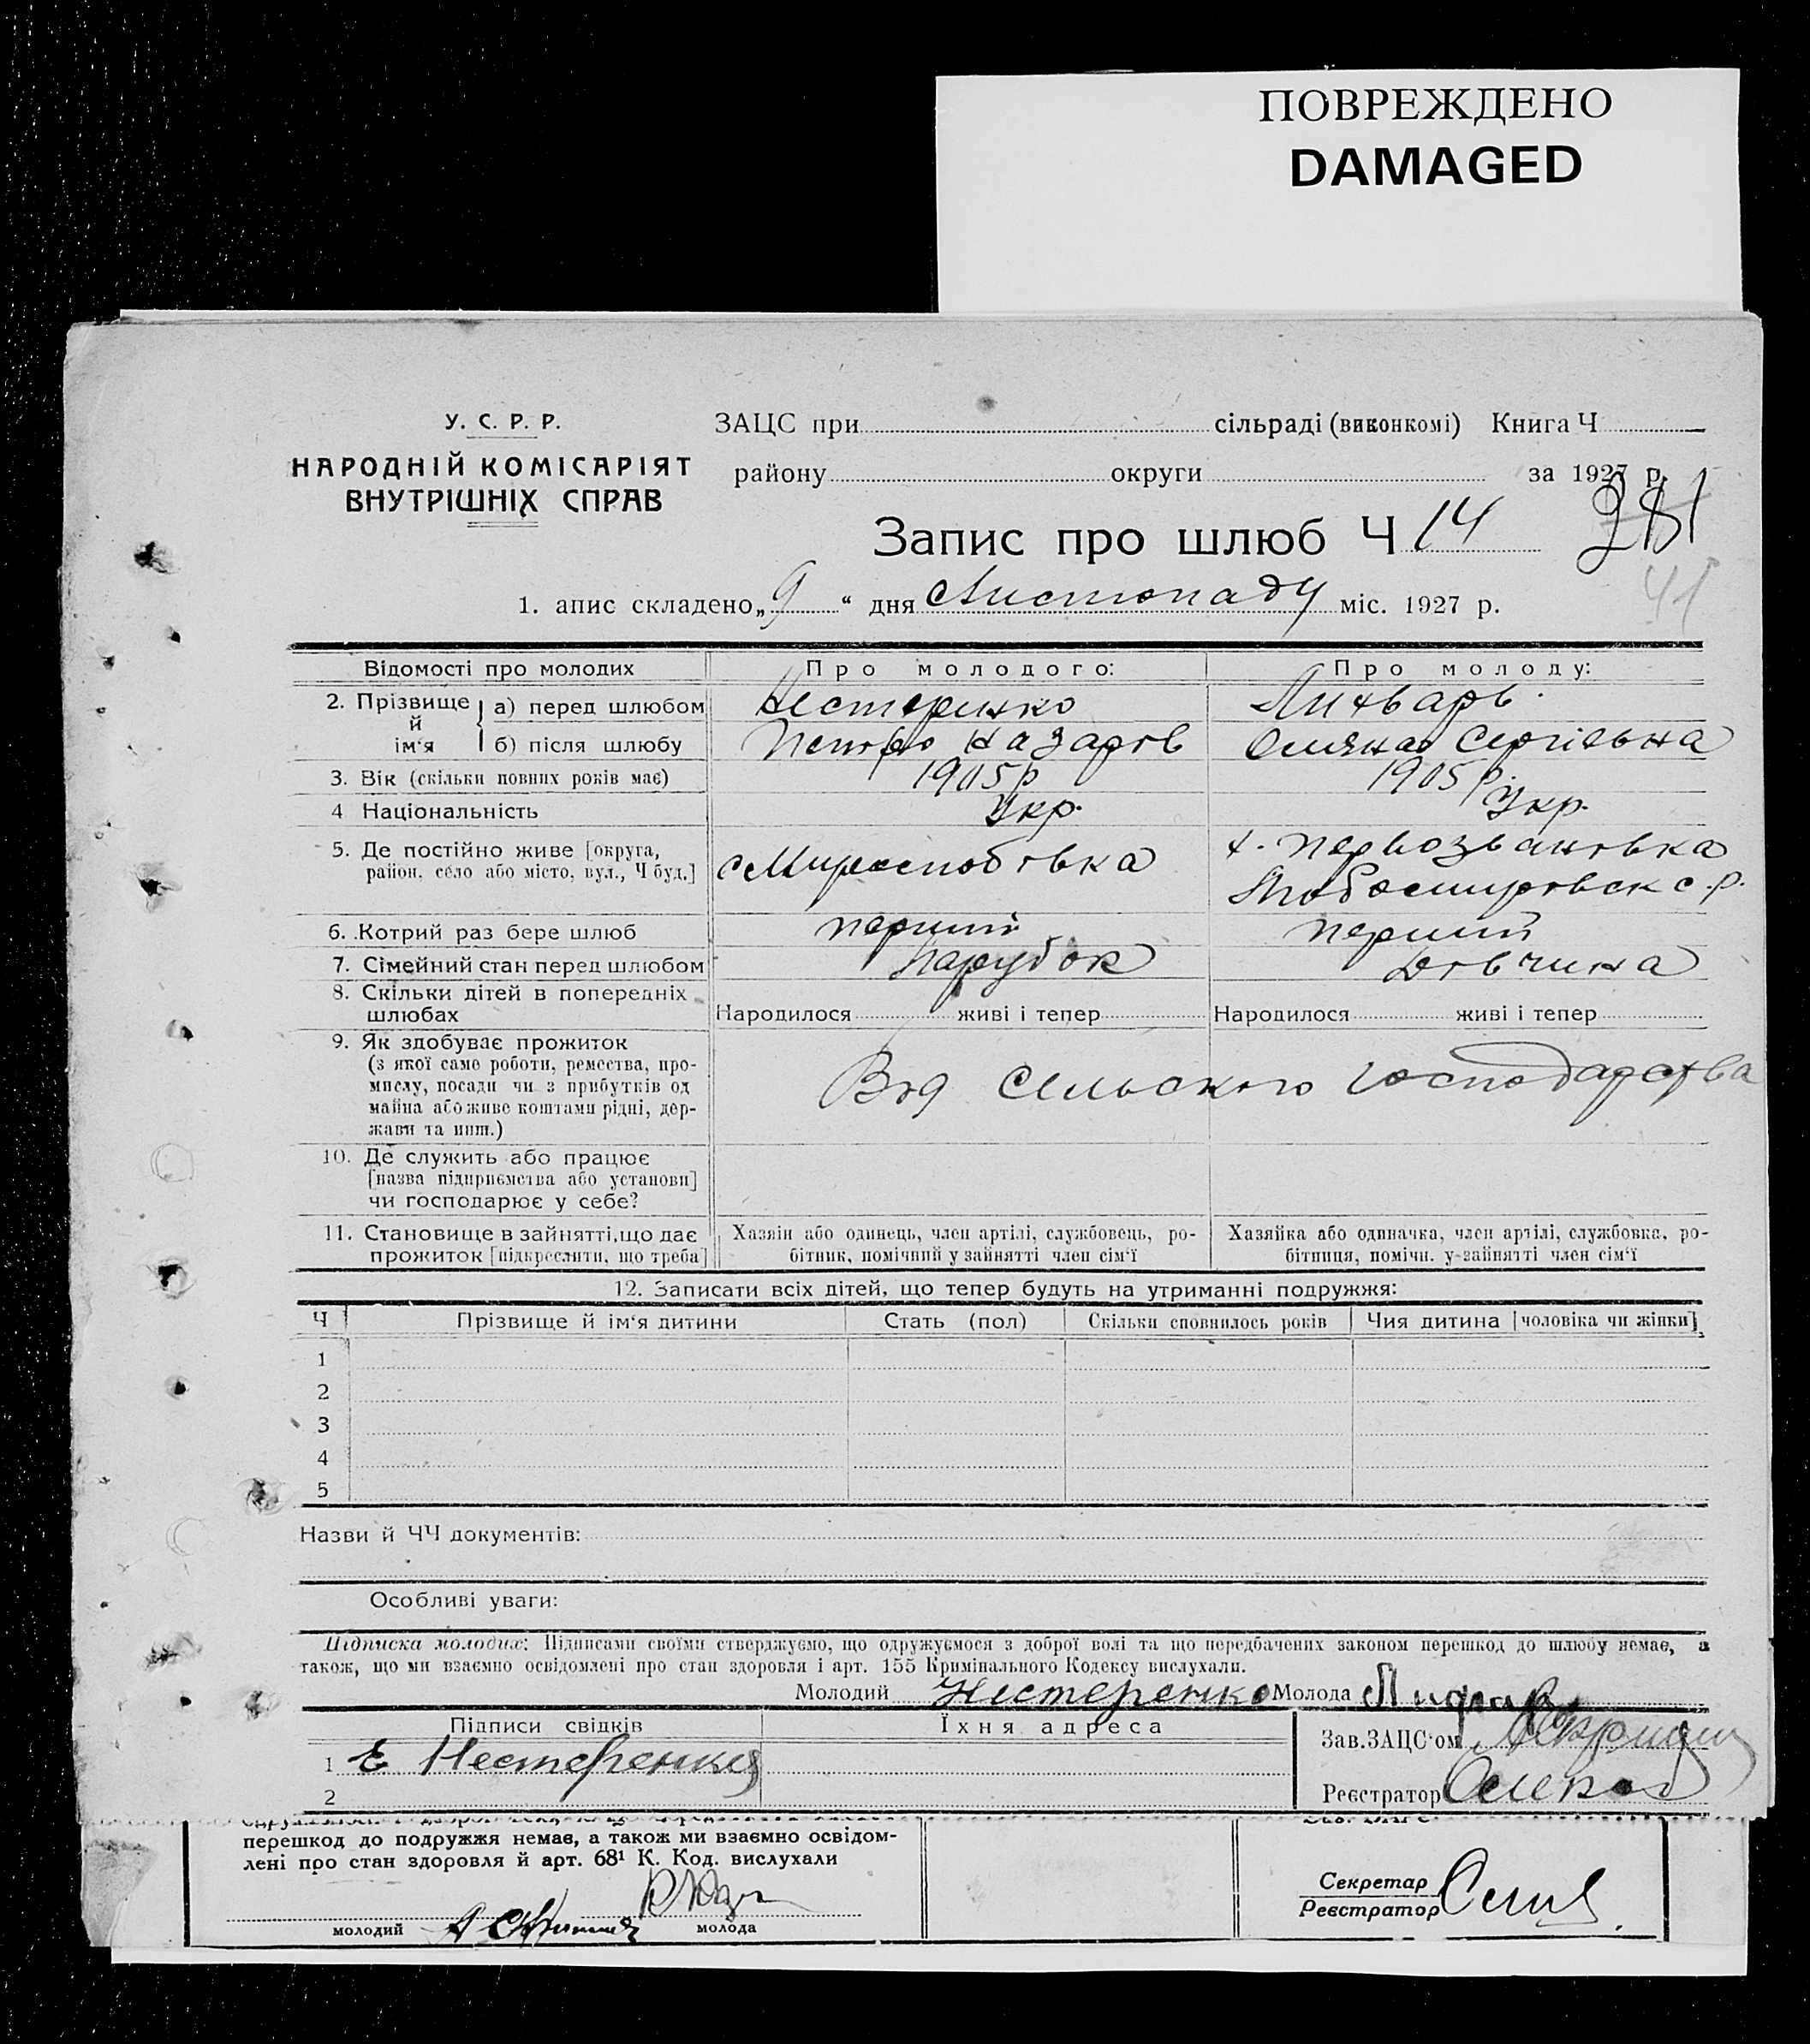 ПОВРЕЖДЕНО
DAMAGED
У. С. Р. Р.
НАРОДНІЙ КОМІСАРІЯТ
ВНУТРІШНІХ СПРАВ
ЗАЦС при сільраді (виконкомі) Книга Ч
району округи за 1927 р.
281
Запис про шлюб Ч 14
41
1. апис складено „9“ дня Листопаду міс. 1927 р.
Відомості про молодих Про молодого: Про молоду:
2. Прізвище й ім‘я а) перед шлюбом Нестеринко
б) після шлюбу Петро Назарів Сергієвна
3. Вік (скільки повних років має) 1905р 1905 р.
4 Національність Укр. Укр.
5. Де постійно живе [округа, район, село або місто, вул., Ч буд.] х. Первозванівка
с.р.
6. Котрий раз бере шлюб перший перший
7. Сімейний стан перед шлюбом Парубок Дівчина
8. Скільки дітей в попередніх шлюбах Народилося живі і тепер Народилося живі і тепер
9. Як здобуває прожиток
(з якої саме роботи, ремества, про-
мислу, посади чи з прибутків од
майна або живе коштами рідні, дер-
жави та инш.)
Від Сельского господарства
10. Де служить або працює
[назва підприємства або установи]
чи господарює у себе?
11. Становище в зайнятті, що дає прожиток [підкреслити, що треба]
Хазяін або одинець, член артілі, службовець, ро-
бітник, помічний у зайнятті член сім‘ї
Хазяйка або одиначка, член артілі, службовка, ро-
бітниця, помічн. у зайнятті член сім‘ї
12. Записати всіх дітей, що тепер будуть на утриманні подружжя:
Ч Прізвище й ім‘я дитини Стать (пол) Скільки сповнилось років Чия дитина [чоловіка чи жінки]
1
2
3
4
5
Назви й ЧЧ документів:
Особливі уваги:
Підписка молодих: Підписами своїми стверджуємо, що одружуємося з доброї волі та що передбачених законом перешкод до шлюбу немає, а
також, що ми взаємно освідомлені про стан здоровля і арт. 155 Кримінального Кодексу вислухали.
Молодий Нестеренко Молода
Підписи свідків Їхня адреса
Зав. ЗАЦС‘ом
1 Е Нестеренко
Реєстратор
2
перешкод до подружжя немає, а також ми взаємно освідом-
лені про стан здоровля й арт. 68¹ К. Код. вислухали
Секретар
Реєстратор
молодий молода